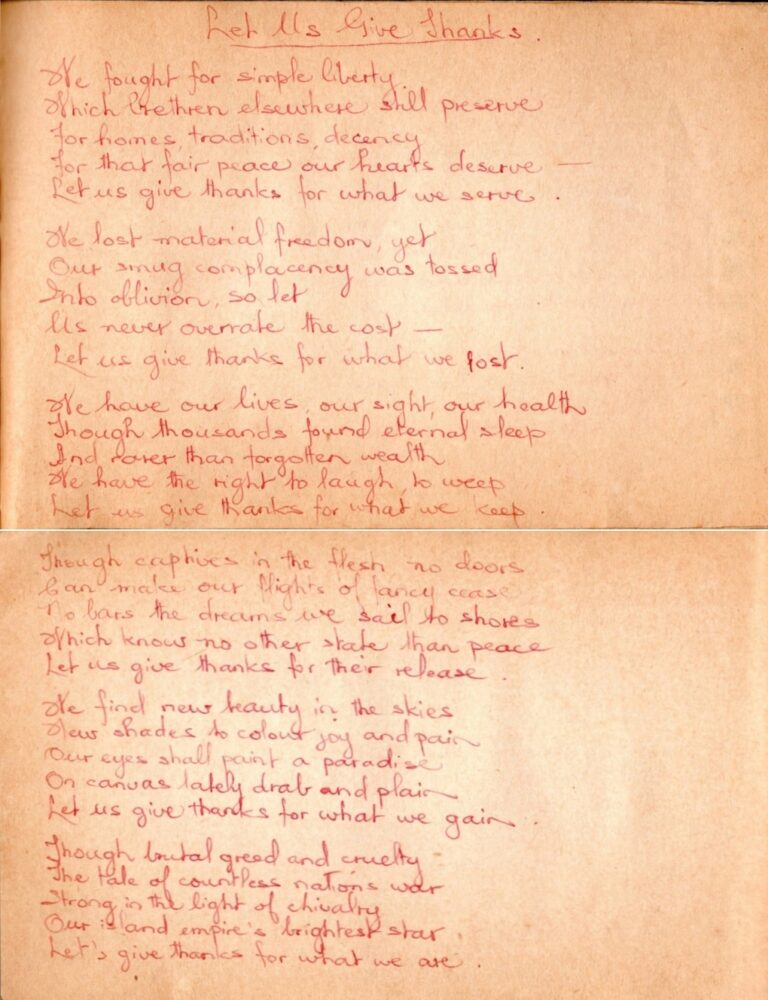 Let Us Give Thanks.
We fought for simple liberty
Which brethren elsewhere still preserve
For homes, traditions, decency
For that fair peace our hearts deserve —
Let us give thanks for what we serve.
We lost material freedom, yet
Our smug complacency was tossed
Into oblivion, so let
Us never overrate the cost —
Let us give thanks for what we lost.
We have our lives, our sight, our health
Though thousands found eternal sleep
And rarer than forgotten wealth
We have the right to laugh, to weep
Let us give thanks for what we keep.
Though captives in the flesh no doors
Can make our flights of fancy cease
No bars the dreams we sail to shores
Which know no other state than peace
Let us give thanks for their release.
We find new beauty in the skies
New shades to colour joy and pain
Our eyes shall paint a paradise
On canvas lately drab and plain
Let us give thanks for what we gain.
Though brutal greed and cruelty
The tale of countless nations war
Strong in the light of chivalry
Our island empire's brightest star
Let's give thanks for what we are.